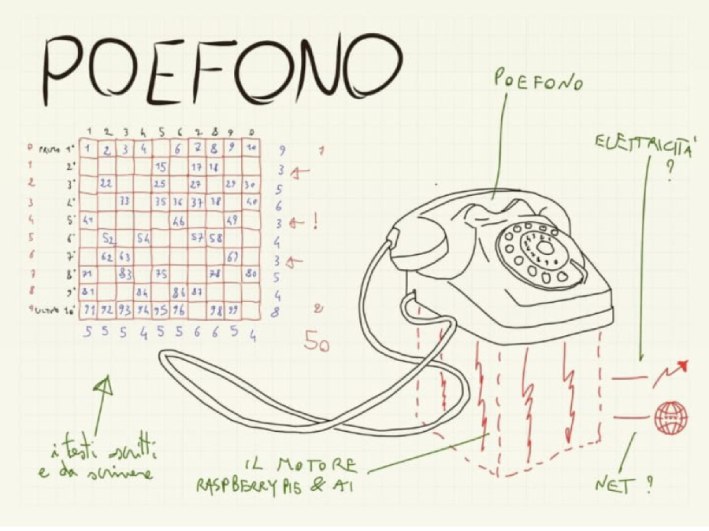 POEFONO
POEFONO
ELETTRICITÀ
?
1 2 3 4 5 6 7 8 9 0
0 PRIMO 1° 1 2 3 4 6 7 8 9 10 9 1
1 2° 15 17 18 3
2 3° 22 25 27 29 30 5
3 4° 33 35 36 37 38 40 6
4 5° 41 46 49 3 !
5 6° 52 54 57 58 4
6 7° 62 63 69 3
7 8° 71 73 75 78 80 5
8 9° 81 84 86 87 4
9 ULTIMO 10° 91 92 93 94 95 96 98 99 8 2
5 5 5 4 5 5 6 6 5 4
50
i testi scritti
e da scrivere
IL MOTORE
RASPBERRY PI5 & AI
NET ?